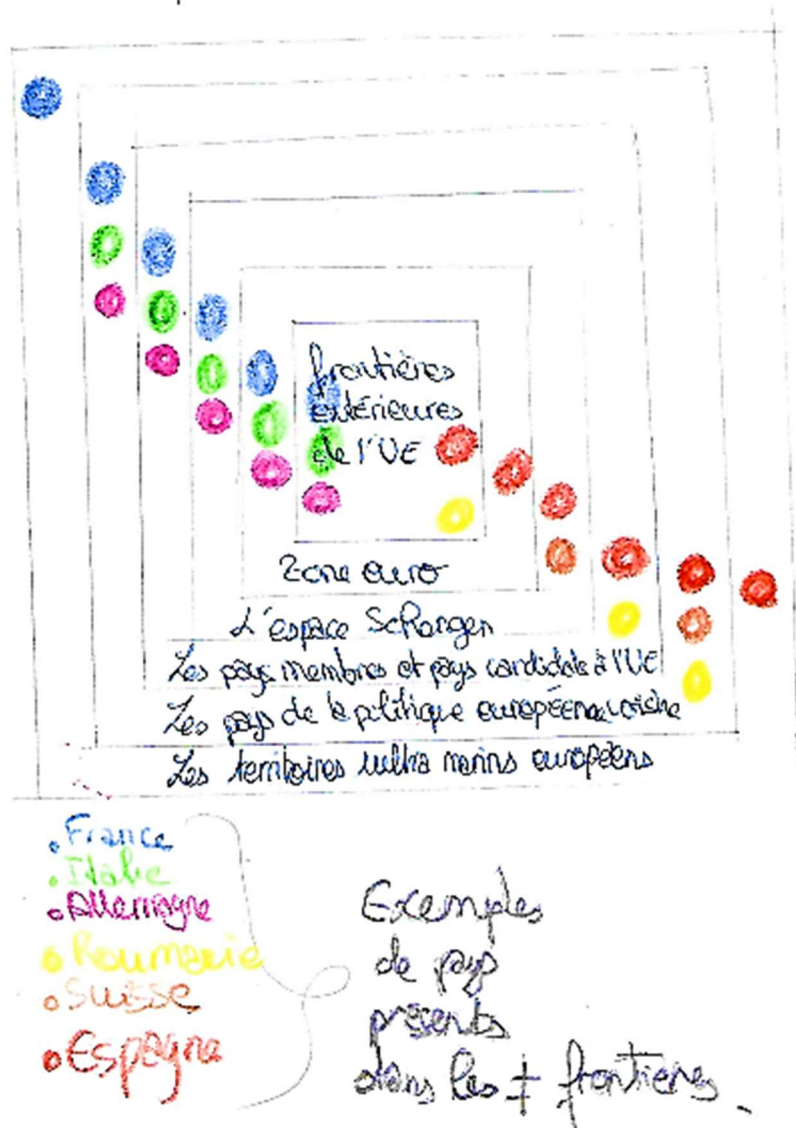 frontières
extérieures
de l'UE
Zone euro
L'espace Schengen
Les pays membres et pays candidats à l'UE
Les pays de la politique européenne voisine
Les territoires ultra marins européens
• France
• Italie
• Allemagne
• Roumanie
• Suisse
• Espagne
Exemples
de pays
présents
dans les ≠ frontières.